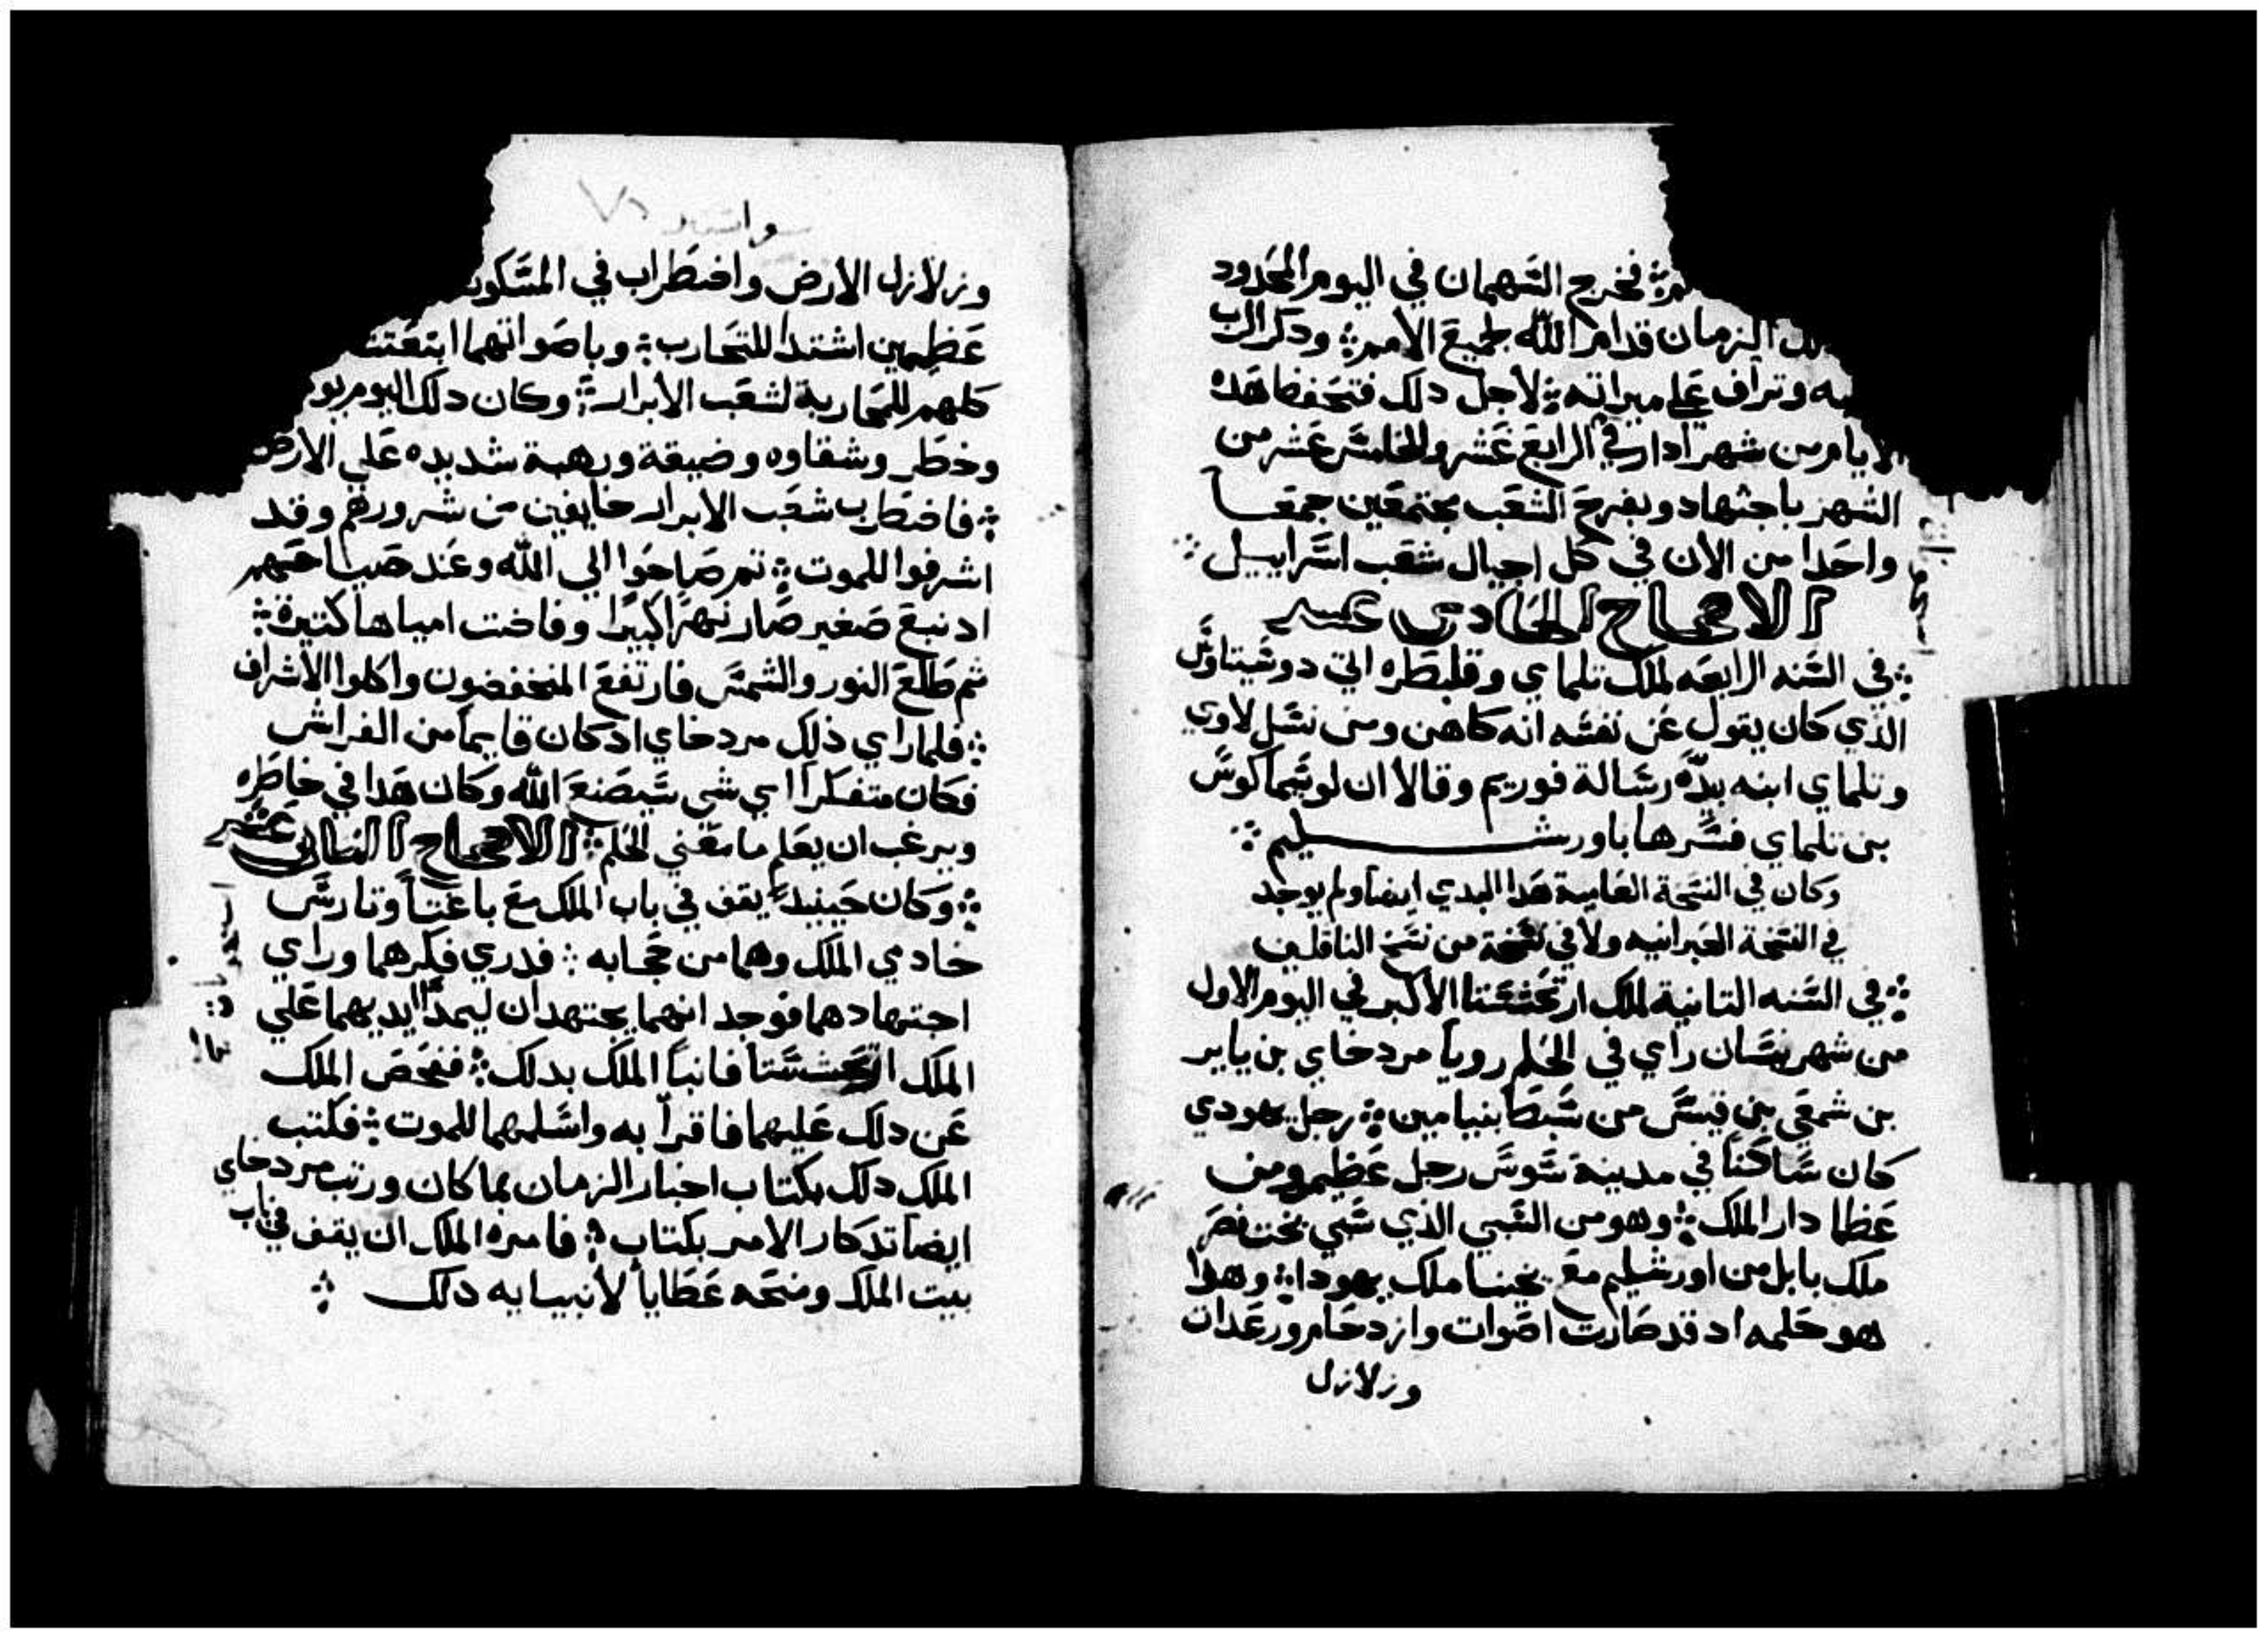 فخرج السهمان في اليوم المحدود
الزمان قدام الله لجميع الأمم ؞ ودكر الرب
وتراف علي ميراته ؞ لأجل دلك فتحفضا هده
الايام من شهر ادار في الرابع عشر والخامس عشر من
الشهر باجتهاد وبفرح الشعب مجتمعين جمعا
واحدا من الأن في كل اجيال شعب اسراييل ؞
الاصحاح الحادي عشر
؞ في السنه الرابعه لملك تلماي وقلبطره اتي دوسيتاوس
الذي كان يقول عن نفسه انه كاهن ومن نسل لاوي
وتلماي ابنه بيده رسالة فوريم وقالا ان لوسيماكوس
بن تلماي فسرها باورشليم ؞
وكان في النسخة العامية هدا البدي ايضا ولم يوجد
في النسخة العبرانيه ولا في نسخة من نسخ الناقلين
؞ في السنه التانية لملك ارتحششتا الأكبر في اليوم الاول
من شهر نيسان راي في الحلم رويا مردخاي بن ياير
بن شمعي بن قيس من سبط بنيامين ؞ رجل يهودي
كان ساكنا في مدينة سوس رجل عظيم ومن
عظما دار الملك ؞ وهو من السبي الذي سبي بخت نصر
ملك بابل من اورشليم مع يخنيا ملك يهودا ؞ وهدا
هو حلمه اد قد صارت اصوات وازدحام ورعدات
وزلازل
وزلازل الارض واضطراب في المسكون
عظيمين اشتدا للتحارب ؞ وباصواتهما ابتعتت
كلهم للمحاربة لشعب الأبرار ؞ وكان دلك اليوم يو
وخطر وشقاوه وضيقة ورهبة شديده علي الأرض
؞ فاضطرب شعب الابرار خايفين من شرورهم وقد
اشرفوا للموت ؞ تم صاحوا الي الله وعند صياحهم
اد نبع صغير صار نهرا كبيرا وفاضت امياها كتيرة ؞
تم طلع النور والشمس فارتفع المنخفضون واكلوا الأشراف
؞ فلما راي ذلك مردخاي اد كان قايما من الفراش
فكان متفكرا اي شي سيصنع الله وكان هدا في خاطره
ويرغب ان يعلم ما معني الحلم ؞ الاصحاح التاني عشر
؞ وكان حينيد يقف في باب الملك مع باغتا وتارس
خادمي الملك وهما من حجابه ؞ فدري فكرهما وراي
اجتهادهما فوجد انهما يجتهدان ليمدا ايديهما علي
الملك ارتحششتا فانبا الملك بدلك ؞ ففحص الملك
عن دلك عليهما فاقرا به واسلمهما للموت ؞ فكتب
الملك دلك بكتاب اخبار الزمان بما كان ورتب مردخاي
ايضا تدكار الامر بكتاب ؞ فامره الملك ان يقف في باب
بيت الملك ومنحه عطايا لأنبيايه دلك ؞